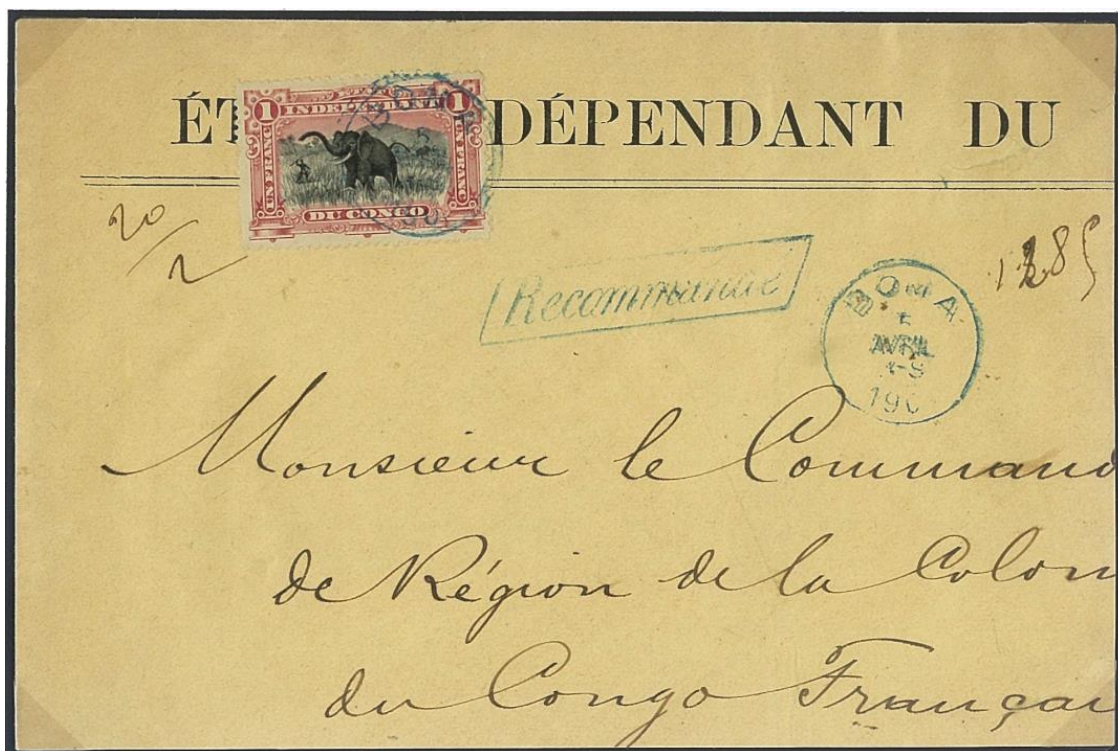 ÉT DÉPENDANT DU
1 ÉTAT 1
INDÉPENDANT
UN FRANC UN FRANC
DU CONGO
20
2
Recommandé
BOMA
AVRIL
190
Monsieur le Command
de Région de la Colon
du Congo Françai